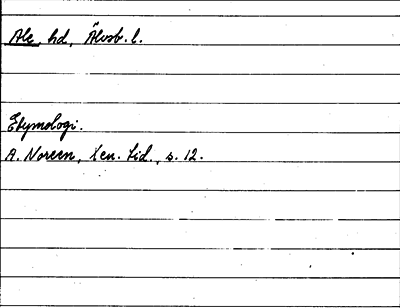 Ale hd, Älvsb. l.
Etymologi.
A. Noreen, Len. tid., s. 12.